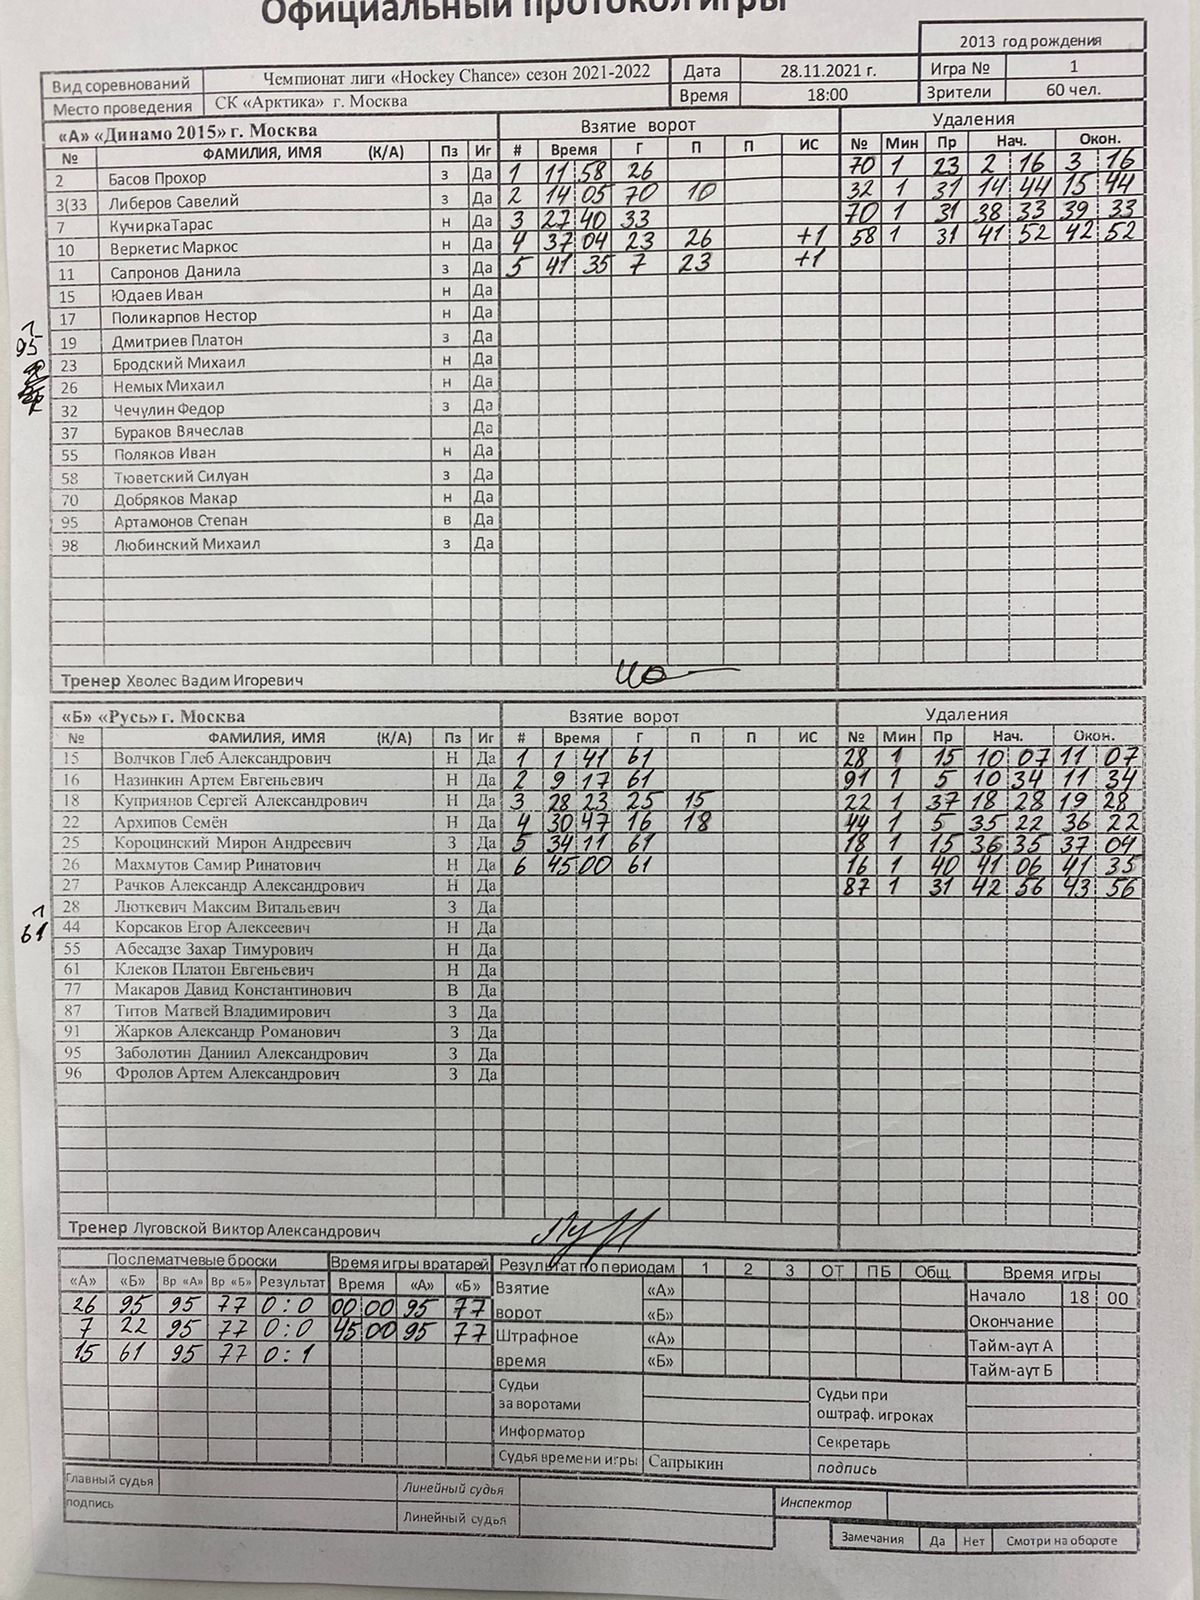 Официальный протокол игры
2013 год рождения
Вид соревнований Чемпионат лиги «Hockey Chance» сезон 2021-2022 Дата 28.11.2021 г. Игра № 1
Место проведения СК «Арктика» г. Москва Время 18:00 Зрители 60 чел.
«А» «Динамо 2015» г. Москва Взятие ворот Удаления
№ ФАМИЛИЯ, ИМЯ (К/А) Пз Иг # Время Г П П ИС № Мин Пр Нач. Окон.
2 Басов Прохор з Да 1 11 58 26 70 1 23 2 16 3 16
3(33 Либеров Савелий з Да 2 14 05 70 10 32 1 31 14 44 15 44
7 КучиркаТарас н Да 3 27 40 33 70 1 31 38 33 39 33
10 Веркетис Маркос н Да 4 37 04 23 26 +1 58 1 31 41 52 42 52
11 Сапронов Данила з Да 5 41 35 7 23 +1
15 Юдаев Иван н Да
17 Поликарпов Нестор н Да
19 Дмитриев Платон з Да
95
23 Бродский Михаил н Да
26 Немых Михаил н Да
32 Чечулин Федор з Да
37 Бураков Вячеслав Да
55 Поляков Иван н Да
58 Тюветский Силуан з Да
70 Добряков Макар н Да
95 Артамонов Степан в Да
98 Любинский Михаил з Да
Тренер Хволес Вадим Игоревич
«Б» «Русь» г. Москва Взятие ворот Удаления
№ ФАМИЛИЯ, ИМЯ (К/А) Пз Иг # Время Г П П ИС № Мин Пр Нач. Окон.
15 Волчков Глеб Александрович Н Да 1 1 41 61 28 1 15 10 07 11 07
16 Назинкин Артем Евгеньевич Н Да 2 9 17 61 91 1 5 10 34 11 34
18 Куприянов Сергей Александрович Н Да 3 28 23 25 15 22 1 37 18 28 19 28
22 Архипов Семён Н Да 4 30 47 16 18 44 1 5 35 22 36 22
25 Короцинский Мирон Андреевич З Да 5 34 11 61 18 1 15 36 35 37 04
26 Махмутов Самир Ринатович Н Да 6 45 00 61 16 1 40 41 06 41 35
27 Рачков Александр Александрович Н Да 87 1 31 42 56 43 56
28 Люткевич Максим Витальевич З Да
61
44 Корсаков Егор Алексеевич Н Да
55 Абесадзе Захар Тимурович Н Да
61 Клеков Платон Евгеньевич Н Да
77 Макаров Давид Константинович В Да
87 Титов Матвей Владимирович З Да
91 Жарков Александр Романович З Да
95 Заболотин Даниил Александрович З Да
96 Фролов Артем Александрович З Да
Тренер Луговской Виктор Александрович
Послематчевые броски Время игры вратарей Результат по периодам 1 2 3 ОТ ПБ Общ. Время игры
«А» «Б» Вр «А» Вр «Б» Результат Время «А» «Б» Взятие ворот «А» Начало 18 00
26 95 95 77 0:0 00 00 95 77 «Б» Окончание
7 22 95 77 0:0 45 00 95 77 Штрафное время «А» Тайм-аут А
15 61 95 77 0:1 «Б» Тайм-аут Б
Судьи за воротами Судьи при оштраф. игроках
Информатор Секретарь
Судья времени игры Сапрыкин подпись
Главный судья Линейный судья Инспектор
подпись Линейный судья
Замечания Да Нет Смотри на обороте